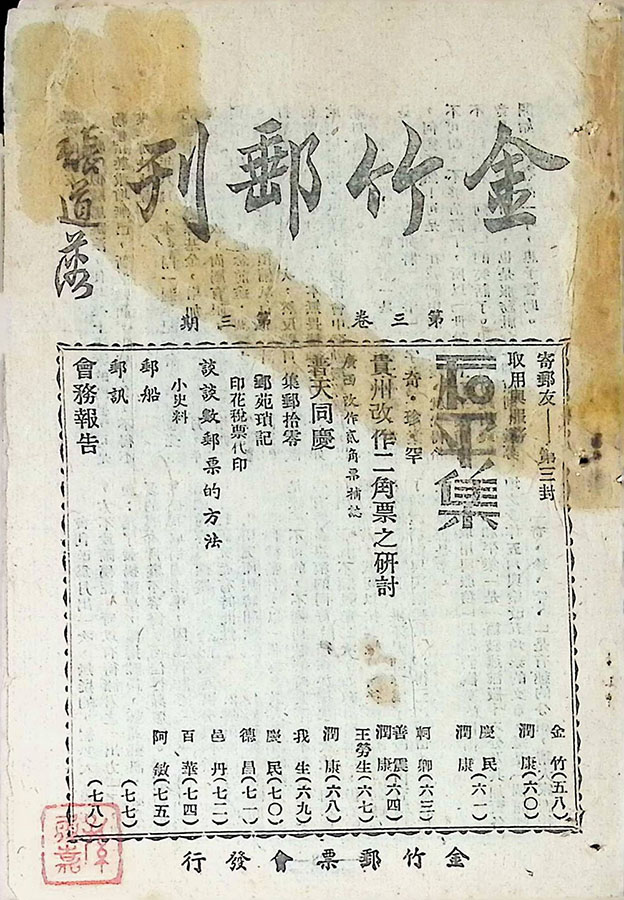 金竹郵刊
第三卷 第三期
寄郵友——第三封 金竹(五八)
取用與服務 潤康(六〇)
集 慶民 潤康(六一)
奇・珍・罕 軻卿(六三)
貴州改作二角票之研討 善震 潤康(六四)
廣西改作貳角票補誌 王勞生(六七)
普天同慶 潤康(六八)
集郵拾零 我生(六九)
郵苑瑣記 慶民(七〇)
印花稅票代印 德昌(七一)
談談數郵票的方法 邑丹(七二)
小史料 百華(七四)
郵船 阿敏(七五)
郵訊 (七七)
會務報告 (七八)
金竹郵票會發行